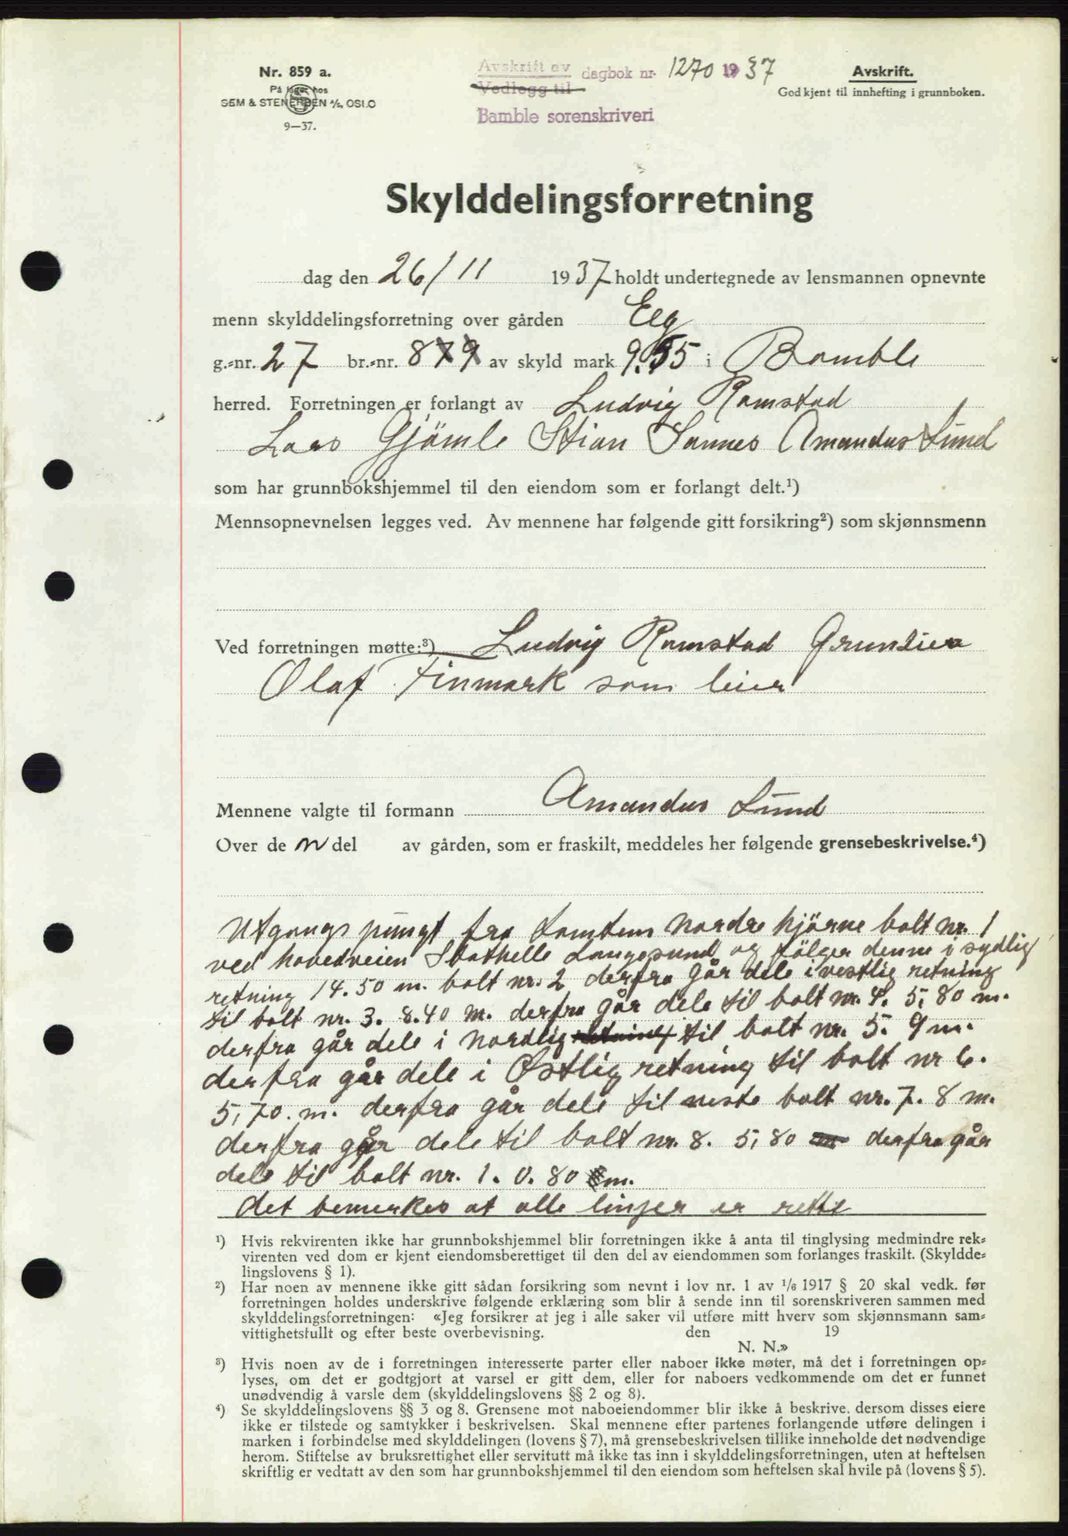 Nr. 859 a.
På lager hos
SEM & STENERSEN A/S, OSLO
9—37.
Avskrift av
Vedlegg til
dagbok nr. 1270 1937
Bamble sorenskriveri
Avskrift.
Godkjent til innhefting i grunnboken.
Skylddelingsforretning
dag den 26/11 1937 holdt undertegnede av lensmannen opnevnte
menn skylddelingsforretning over gården Elg
g.-nr. 27 br.-nr. 879 av skyld mark 9.55 i Bamble
herred. Forretningen er forlangt av Ludvig Ramstad
Lars Gjömle Stian Sannes Amandus Lund
som har grunnbokshjemmel til den eiendom som er forlangt delt.¹)
Mennsopnevnelsen legges ved. Av mennene har følgende gitt forsikring²) som skjønnsmenn
Ved forretningen møtte:³) Ludvig Ramstad Grundeier
Olaf Finmark som leier
Mennene valgte til formann Amandus Lund
Over den del av gården, som er fraskilt, meddeles her følgende grensebeskrivelse.⁴)
Utgangs pungt fra tomtens nordre hjörne bolt nr. 1
ved hovedveien Stathelle Langesund og fölger denne i sydlig
retning 14.50 m. bolt nr. 2 derfra går dele i vestlig retning
til bolt nr. 3. 8.40 m. derfra går dele til bolt nr. 4. 5,80 m.
derfra går dele i nordlig retning til bolt nr. 5. 9 m.
derfra går dele i Østlig retning til bolt nr 6.
5,70. m. derfra går dele til neste bolt nr. 7. 8 m.
derfra går dele til bolt nr. 8. 5,80 m derfra går
dele til bolt nr. 1. 0.80 m.
det bemerkes at alle linjer er rette
¹) Hvis rekvirenten ikke har grunnbokshjemmel blir forretningen ikke å anta til tinglysing medmindre rek-
virenten ved dom er kjent eiendomsberettiget til den del av eiendommen som forlanges fraskilt. (Skyldde-
lingslovens § 1).
²) Har noen av mennene ikke gitt sådan forsikring som nevnt i lov nr. 1 av 1/6 1917 § 20 skal vedk. før
forretningen holdes underskrive følgende erklæring som blir å sende inn til sorenskriveren sammen med
skylddelingsforretningen: «Jeg forsikrer at jeg i alle saker vil utføre mitt hverv som skjønnsmann sam-
vittighetsfullt og efter beste overbevisning. den 19
N. N.»
³) Hvis noen av de i forretningen interesserte parter eller naboer ikke møter, må det i forretningen op-
lyses, om det er godtgjort at varsel er gitt dem, eller for naboers vedkommende om det er funnet
unødvendig å varsle dem (skylddelingslovens §§ 2 og 8).
⁴) Se skylddelingslovens §§ 3 og 8. Grensene mot naboeiendommer blir ikke å beskrive, dersom disses eiere
ikke er tilstede og samtykker i beskrivelsen. Skal mennene efter partenes forlangende utføre delingen i
marken i forbindelse med skylddelingen (lovens § 7), må grensebeskrivelsen tillike inneholde det nødvendige
herom. Stiftelse av bruksrettighet eller servitutt må ikke tas inn i skylddelingsforretningen, uten at heftelsen
skriftlig er vedtatt av den som har grunnbokshjemmel til den eiendom som heftelsen skal hvile på (lovens § 5).